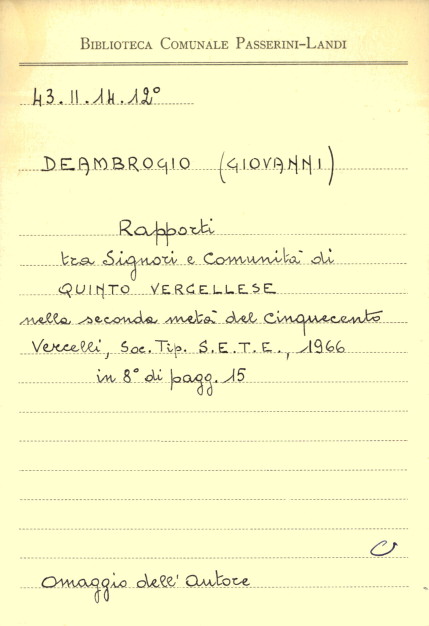 BIBLIOTECA COMUNALE PASSERINI-LANDI
43.II.14.12°
DEAMBROGIO (GIOVANNI)
Rapporti
tra Signori e Comunità di
QUINTO VERCELLESE
nella seconda metà del Cinquecento
Vercelli, Soc. Tip. S.E.T.E., 1966
in 8° di pagg. 15
Omaggio dell'Autore